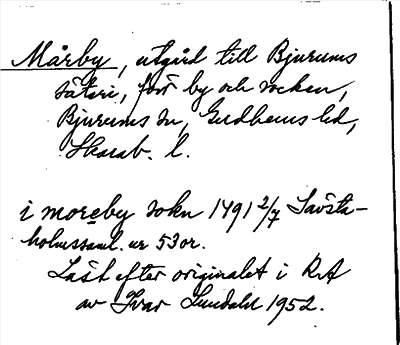 Mårby, utgård till Bjurums
säteri, förr by och socken,
Bjurums sn, Gudhems hd,
Skarab. l.
i moreby sokn 1491 2/7 Säfsta-
holmssaml. nr 53 or.
Läst efter originalet i RA
av Ivar Lundahl 1952.